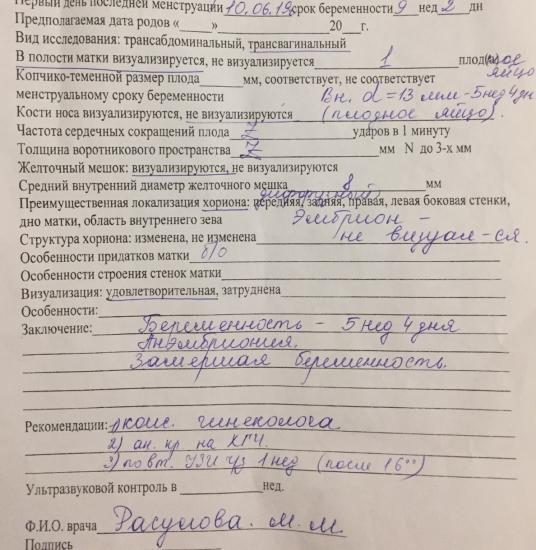 Первый день последней менструации 10.06.19 срок беременности 9 нед 2 дн
Предполагаемая дата родов «____»____________20__г.
Вид исследования: трансабдоминальный, трансвагинальный
В полости матки визуализируется, не визуализируется 1 плод(ное) яйцо
Копчико-теменной размер плода____мм, соответствует, не соответствует
менструальному сроку беременности Вн. d = 13 мм - 5 нед 4 дн
Кости носа визуализируются, не визуализируются (плодное яйцо).
Частота сердечных сокращений плода ударов в 1 минуту
Толщина воротникового пространства мм N до 3-х мм
Желточный мешок: визуализируются, не визуализируются
Средний внутренний диаметр желточного мешка 8 мм
Преимущественная локализация хориона: передняя, задняя, правая, левая боковая стенки,
дно матки, область внутреннего зева Эмбрион -
Структура хориона: изменена, не изменена не визуал-ся.
Особенности придатков матки б/о
Особенности строения стенок матки
Визуализация: удовлетворительная, затруднена
Особенности:
Заключение: Беременность - 5 нед 4 дня
Анэмбриония.
Замершая беременность.
Рекомендации: 1) конс. гинеколога
2) ан. кр на ХГЧ.
3) повт. УЗИ чз 1 нед (после 16⁰⁰)
Ультразвуковой контроль в ________нед.
Ф.И.О. врача Расулова. М. М.
Подпись